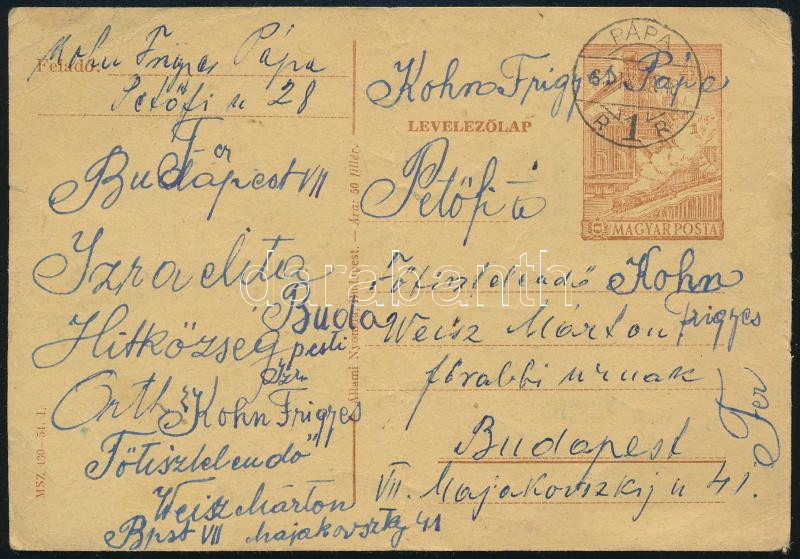 Feladó: Kohn Frigyes Pápa
Petőfi u 28
Fer
Budapest VII
Izraelita
Buda
Hitközség pesti
Izr
Orth
Kohn Frigyes
Főtisztelendő"
Weisz Márton
Bpst VII Majakovszkij 41
MSZ 430-54. I.
Állami Nyomda, Budapest. — Ára: 50 fillér.
PÁPA
1
Kohn Frigyes Pápa
LEVELEZŐLAP
MAGYAR POSTA
Petőfi u
Főtisztelendő Kohn
Weisz Márton Frigyes
főrabbi úrnak
Budapest
VII. Majakovszkij u 41.
Fer
darabanth